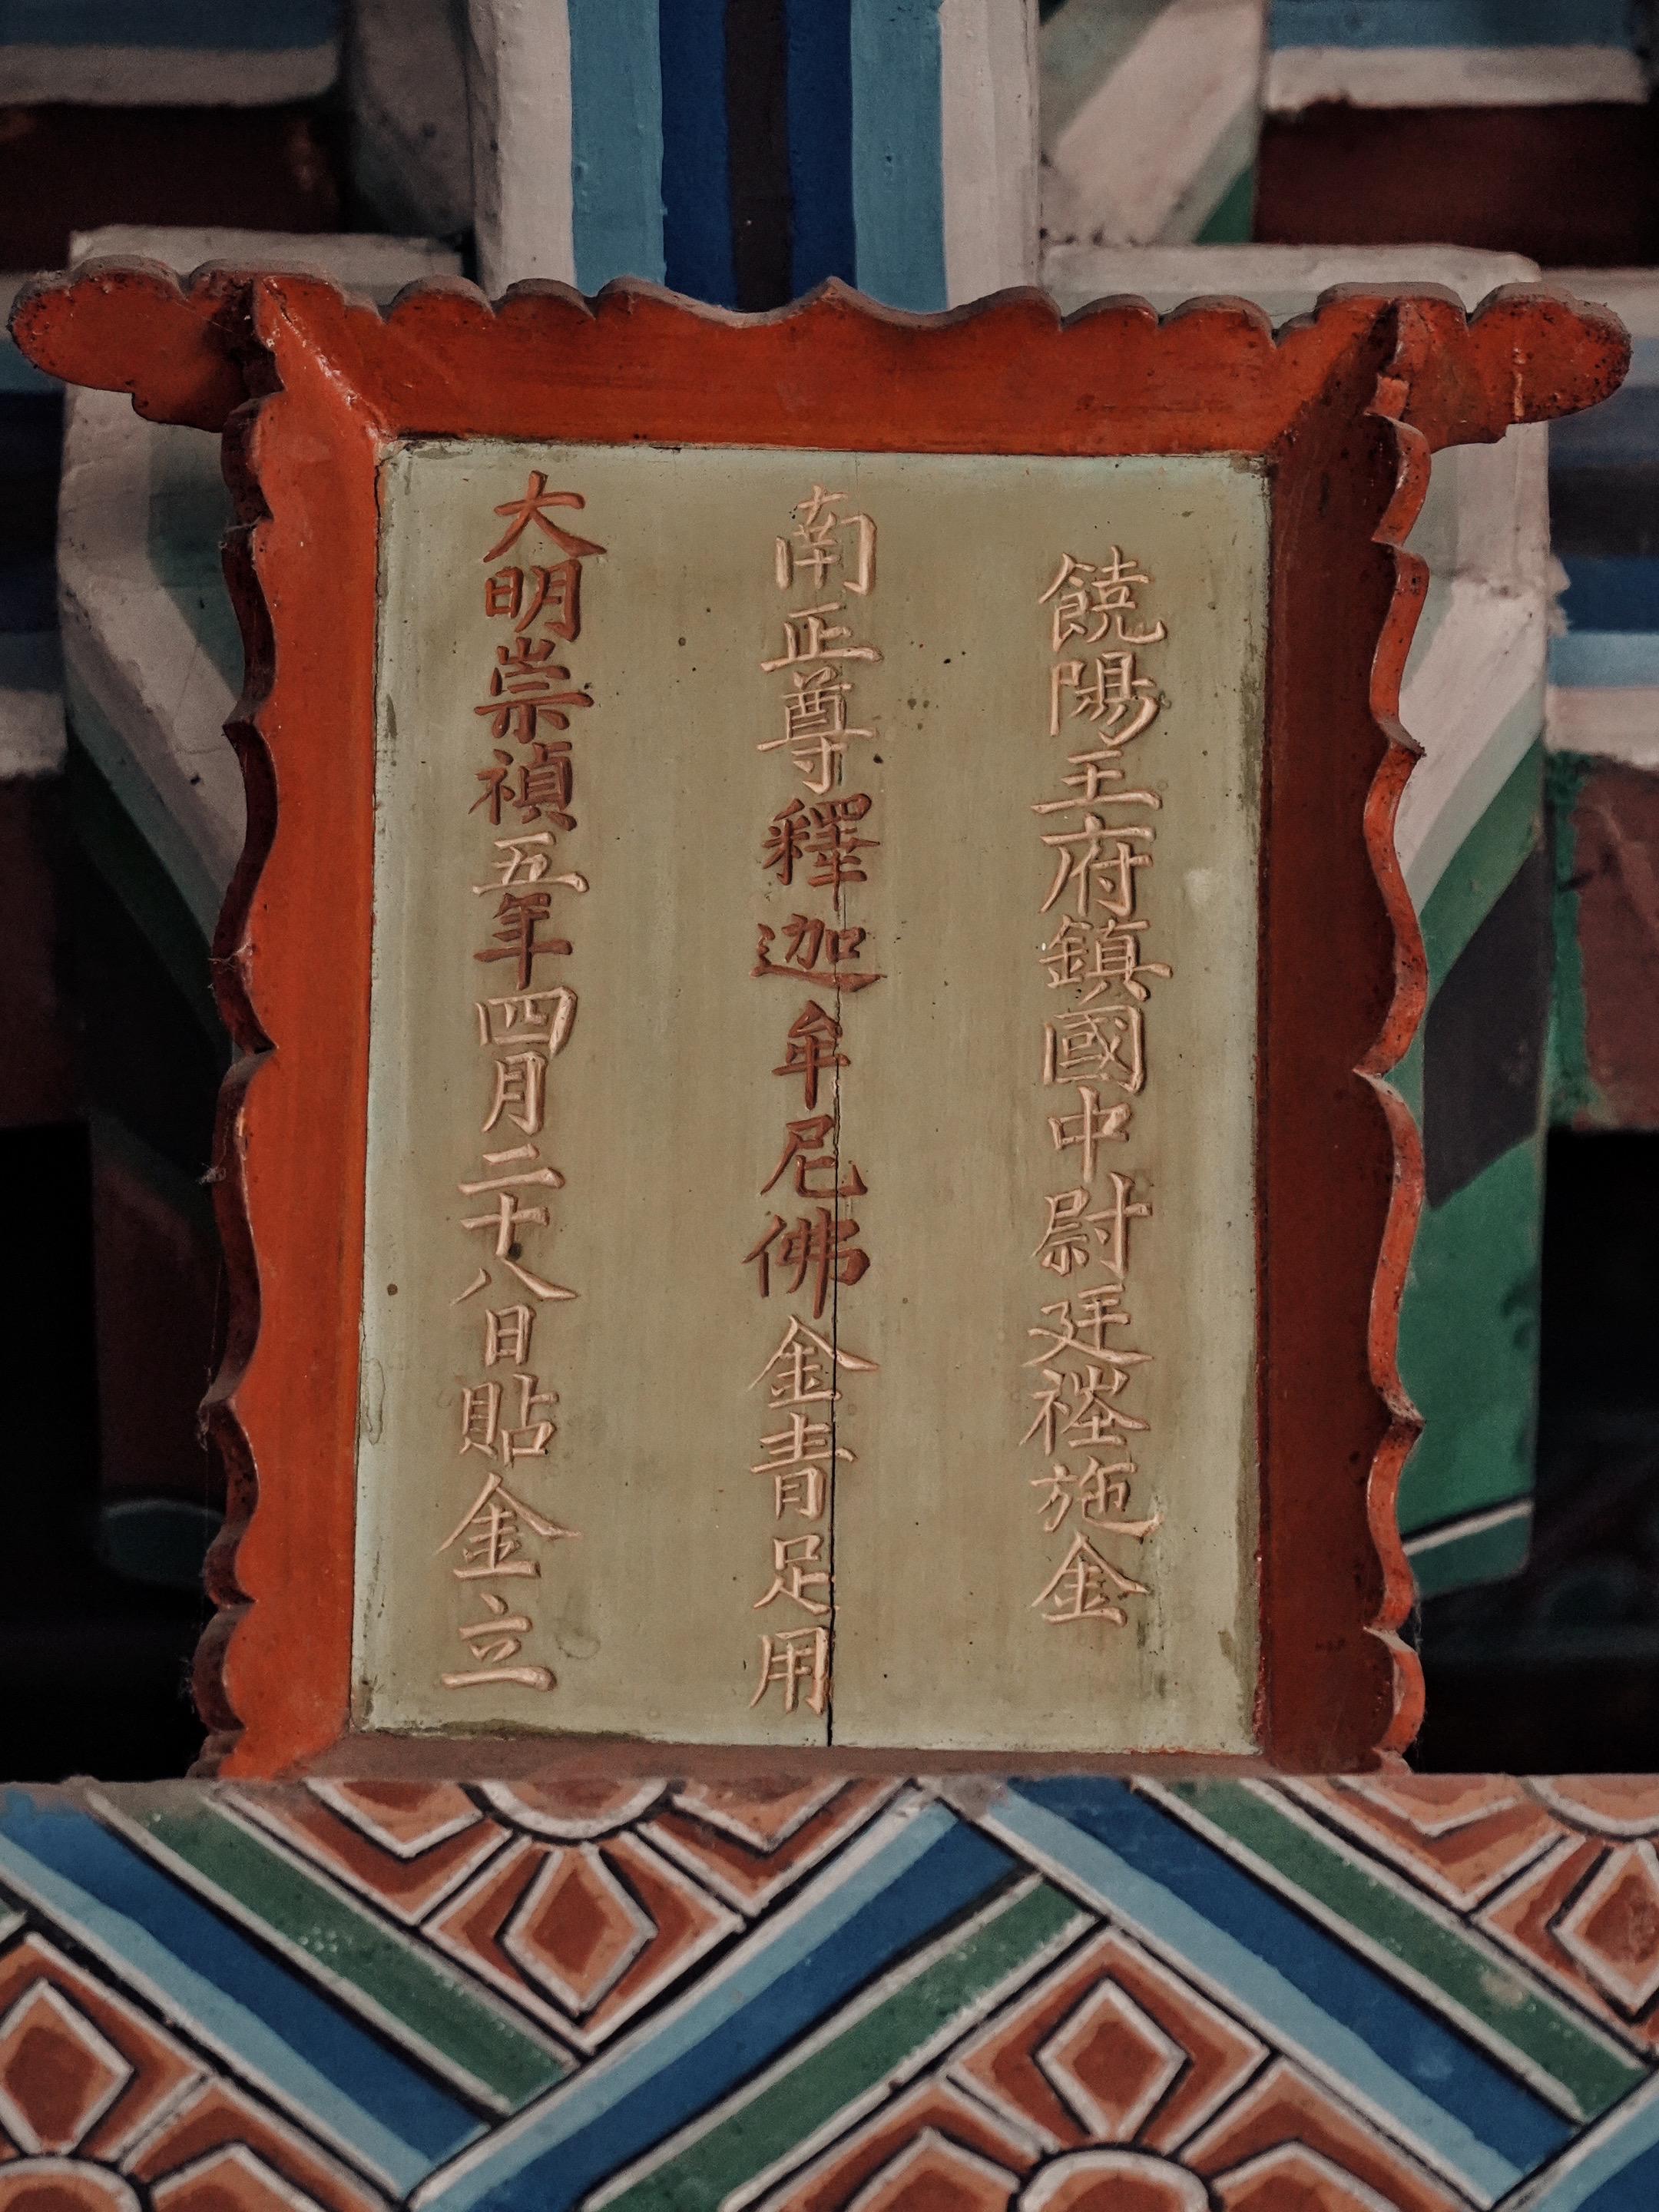 饒陽王府鎮國中尉廷𥚽施金
南正尊釋迦牟尼佛金青足用
大明崇禎五年四月二十八日貼金立